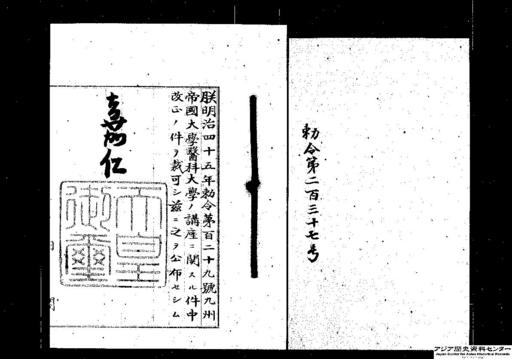 勅令第二百三十七号
朕明治四十五年勅令第百二十九號九州
帝國大學醫科大學ノ講座ニ關スル件中
改正ノ件ヲ裁可シ茲ニ之ヲ公布セシム
嘉仁
天皇御璽
アジア歴史資料センター
Japan Center for Asian Historical Records